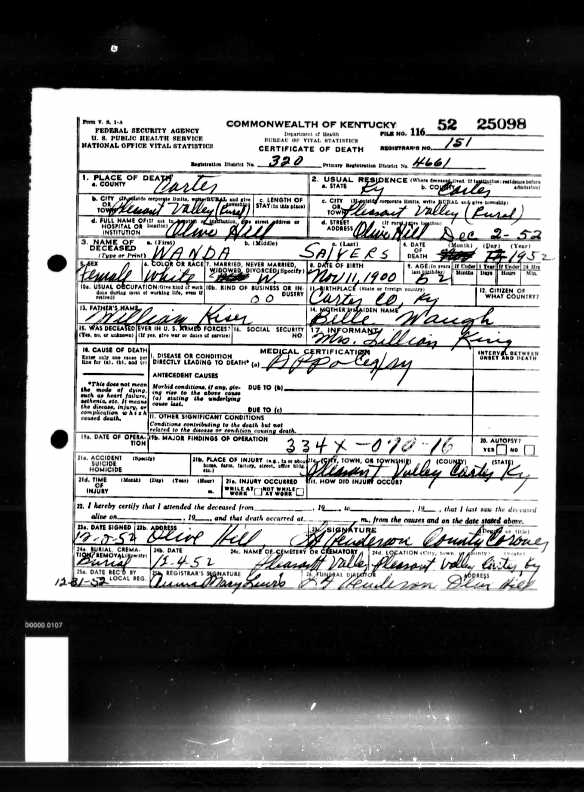 Form V. S. 1-A
FEDERAL SECURITY AGENCY
U. S. PUBLIC HEALTH SERVICE
NATIONAL OFFICE VITAL STATISTICS
COMMONWEALTH OF KENTUCKY
Department of Health
BUREAU OF VITAL STATISTICS
CERTIFICATE OF DEATH
FILE NO. 116 52 25098
REGISTRAR'S NO. 151
Registration District No. 320 Primary Registration District No. 4661
1. PLACE OF DEATH
a. COUNTY Carter
2. USUAL RESIDENCE (Where deceased lived. If institution: residence before admission)
a. STATE Ky b. COUNTY Carter
b. CITY (If outside corporate limits, write RURAL and give township)
OR TOWN Pleasant Valley (Rural)
c. LENGTH OF STAY (in this place)
c. CITY (If outside corporate limits, write RURAL and give township)
OR TOWN Pleasant Valley (Rural)
d. FULL NAME OF (If not in hospital or institution, give street address or location)
HOSPITAL OR INSTITUTION Olive Hill
d. STREET ADDRESS (If rural, give location) Olive Hill
3. NAME OF DECEASED (Type or Print)
a. (First) WANDA b. (Middle) c. (Last) SALYERS
4. DATE OF DEATH (Month) (Day) (Year)
Dec 2-52
1952
5. SEX Female
6. COLOR OR RACE White
7. MARRIED, NEVER MARRIED, WIDOWED, DIVORCED (Specify) W.
8. DATE OF BIRTH Nov 11, 1900
9. AGE (In years last birthday) 52
If Under 1 Year Months Days
If Under 24 Hrs Hours Min.
10a. USUAL OCCUPATION (Give kind of work done during most of working life, even if retired)
10b. KIND OF BUSINESS OR INDUSTRY 00
11. BIRTHPLACE (State or foreign country) Carter Co, Ky
12. CITIZEN OF WHAT COUNTRY?
13. FATHER'S NAME William Kiser
14. MOTHER'S MAIDEN NAME Waugh
15. WAS DECEASED EVER IN U. S. ARMED FORCES?
(Yes, no, or unknown) (If yes, give war or dates of service)
16. SOCIAL SECURITY NO.
17. INFORMANT Mrs. Lillian King
18. CAUSE OF DEATH
Enter only one cause per line for (a), (b), and (c)
MEDICAL CERTIFICATION
INTERVAL BETWEEN ONSET AND DEATH
I. DISEASE OR CONDITION
DIRECTLY LEADING TO DEATH* (a)
*This does not mean the mode of dying, such as heart failure, asthenia, etc. It means the disease, injury, or complication which caused death.
ANTECEDENT CAUSES
Morbid conditions, if any, giving rise to the above cause (a) stating the underlying cause last.
DUE TO (b)
DUE TO (c)
II. OTHER SIGNIFICANT CONDITIONS
Conditions contributing to the death but not related to the disease or condition causing death.
19a. DATE OF OPERATION
19b. MAJOR FINDINGS OF OPERATION
334X-070-16
20. AUTOPSY?
YES NO
21a. ACCIDENT SUICIDE HOMICIDE (Specify)
21b. PLACE OF INJURY (e.g., in or about home, farm, factory, street, office bldg., etc.)
21c. (CITY, TOWN, OR TOWNSHIP) (COUNTY) (STATE)
Pleasant Valley Carter Ky
21d. TIME OF INJURY (Month) (Day) (Year) (Hour) m.
21e. INJURY OCCURRED
WHILE AT WORK NOT WHILE AT WORK
21f. HOW DID INJURY OCCUR?
22. I hereby certify that I attended the deceased from , 19 , to , 19 , that I last saw the deceased
alive on , 19 , and that death occurred at m., from the causes and on the date stated above.
23a. DATE SIGNED
23b. ADDRESS Olive Hill
23c. SIGNATURE Henderson County Coroner
24a. BURIAL, CREMATION, REMOVAL (Specify) Burial
24b. DATE 12-4-52
24c. NAME OF CEMETERY OR CREMATORY Pleasant Valley
24d. LOCATION (City, town, or county) (State) Pleasant Valley Carter, Ky
25a. DATE REC'D BY LOCAL REG. 12-31-52
25b. REGISTRAR'S SIGNATURE Mary Lewis
26. FUNERAL DIRECTOR Henderson
ADDRESS Olive Hill
D0000.0107